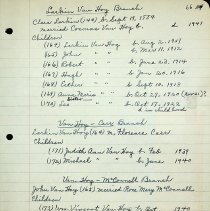 Larkin Van Hoy Branch
66
Clara Larkin (140) b. Sept 19, 1884 d 1941
Married Cornelius Van Hoy b.
Children
(164) Larkin Van Hoy b. Aug 2, 1909
(165) John " " b. Mar 11, 1912
(166) Robert " " b. June 23, 1914
(167) Hugh " " b. Jan 20, 1916
(168) Esther " " b. Sept 10, 1918
(169) Anna Marie " " b. Oct 29, 1920
(170) Leo " " b. Oct 17, 1922
d in childhood
Van Hoy - Carr Branch
Larkin Van Hoy (164) m. Florence Carr
Children
(171) Judith Ann Van Hoy b. Feb 1939
(172) Michael " " b. June 1940
Van Hoy - McConnell Branch
John Van Hoy (165) married Rose Mary McConnell
Children
(173) Vincent Van Hoy b. Oct 1940